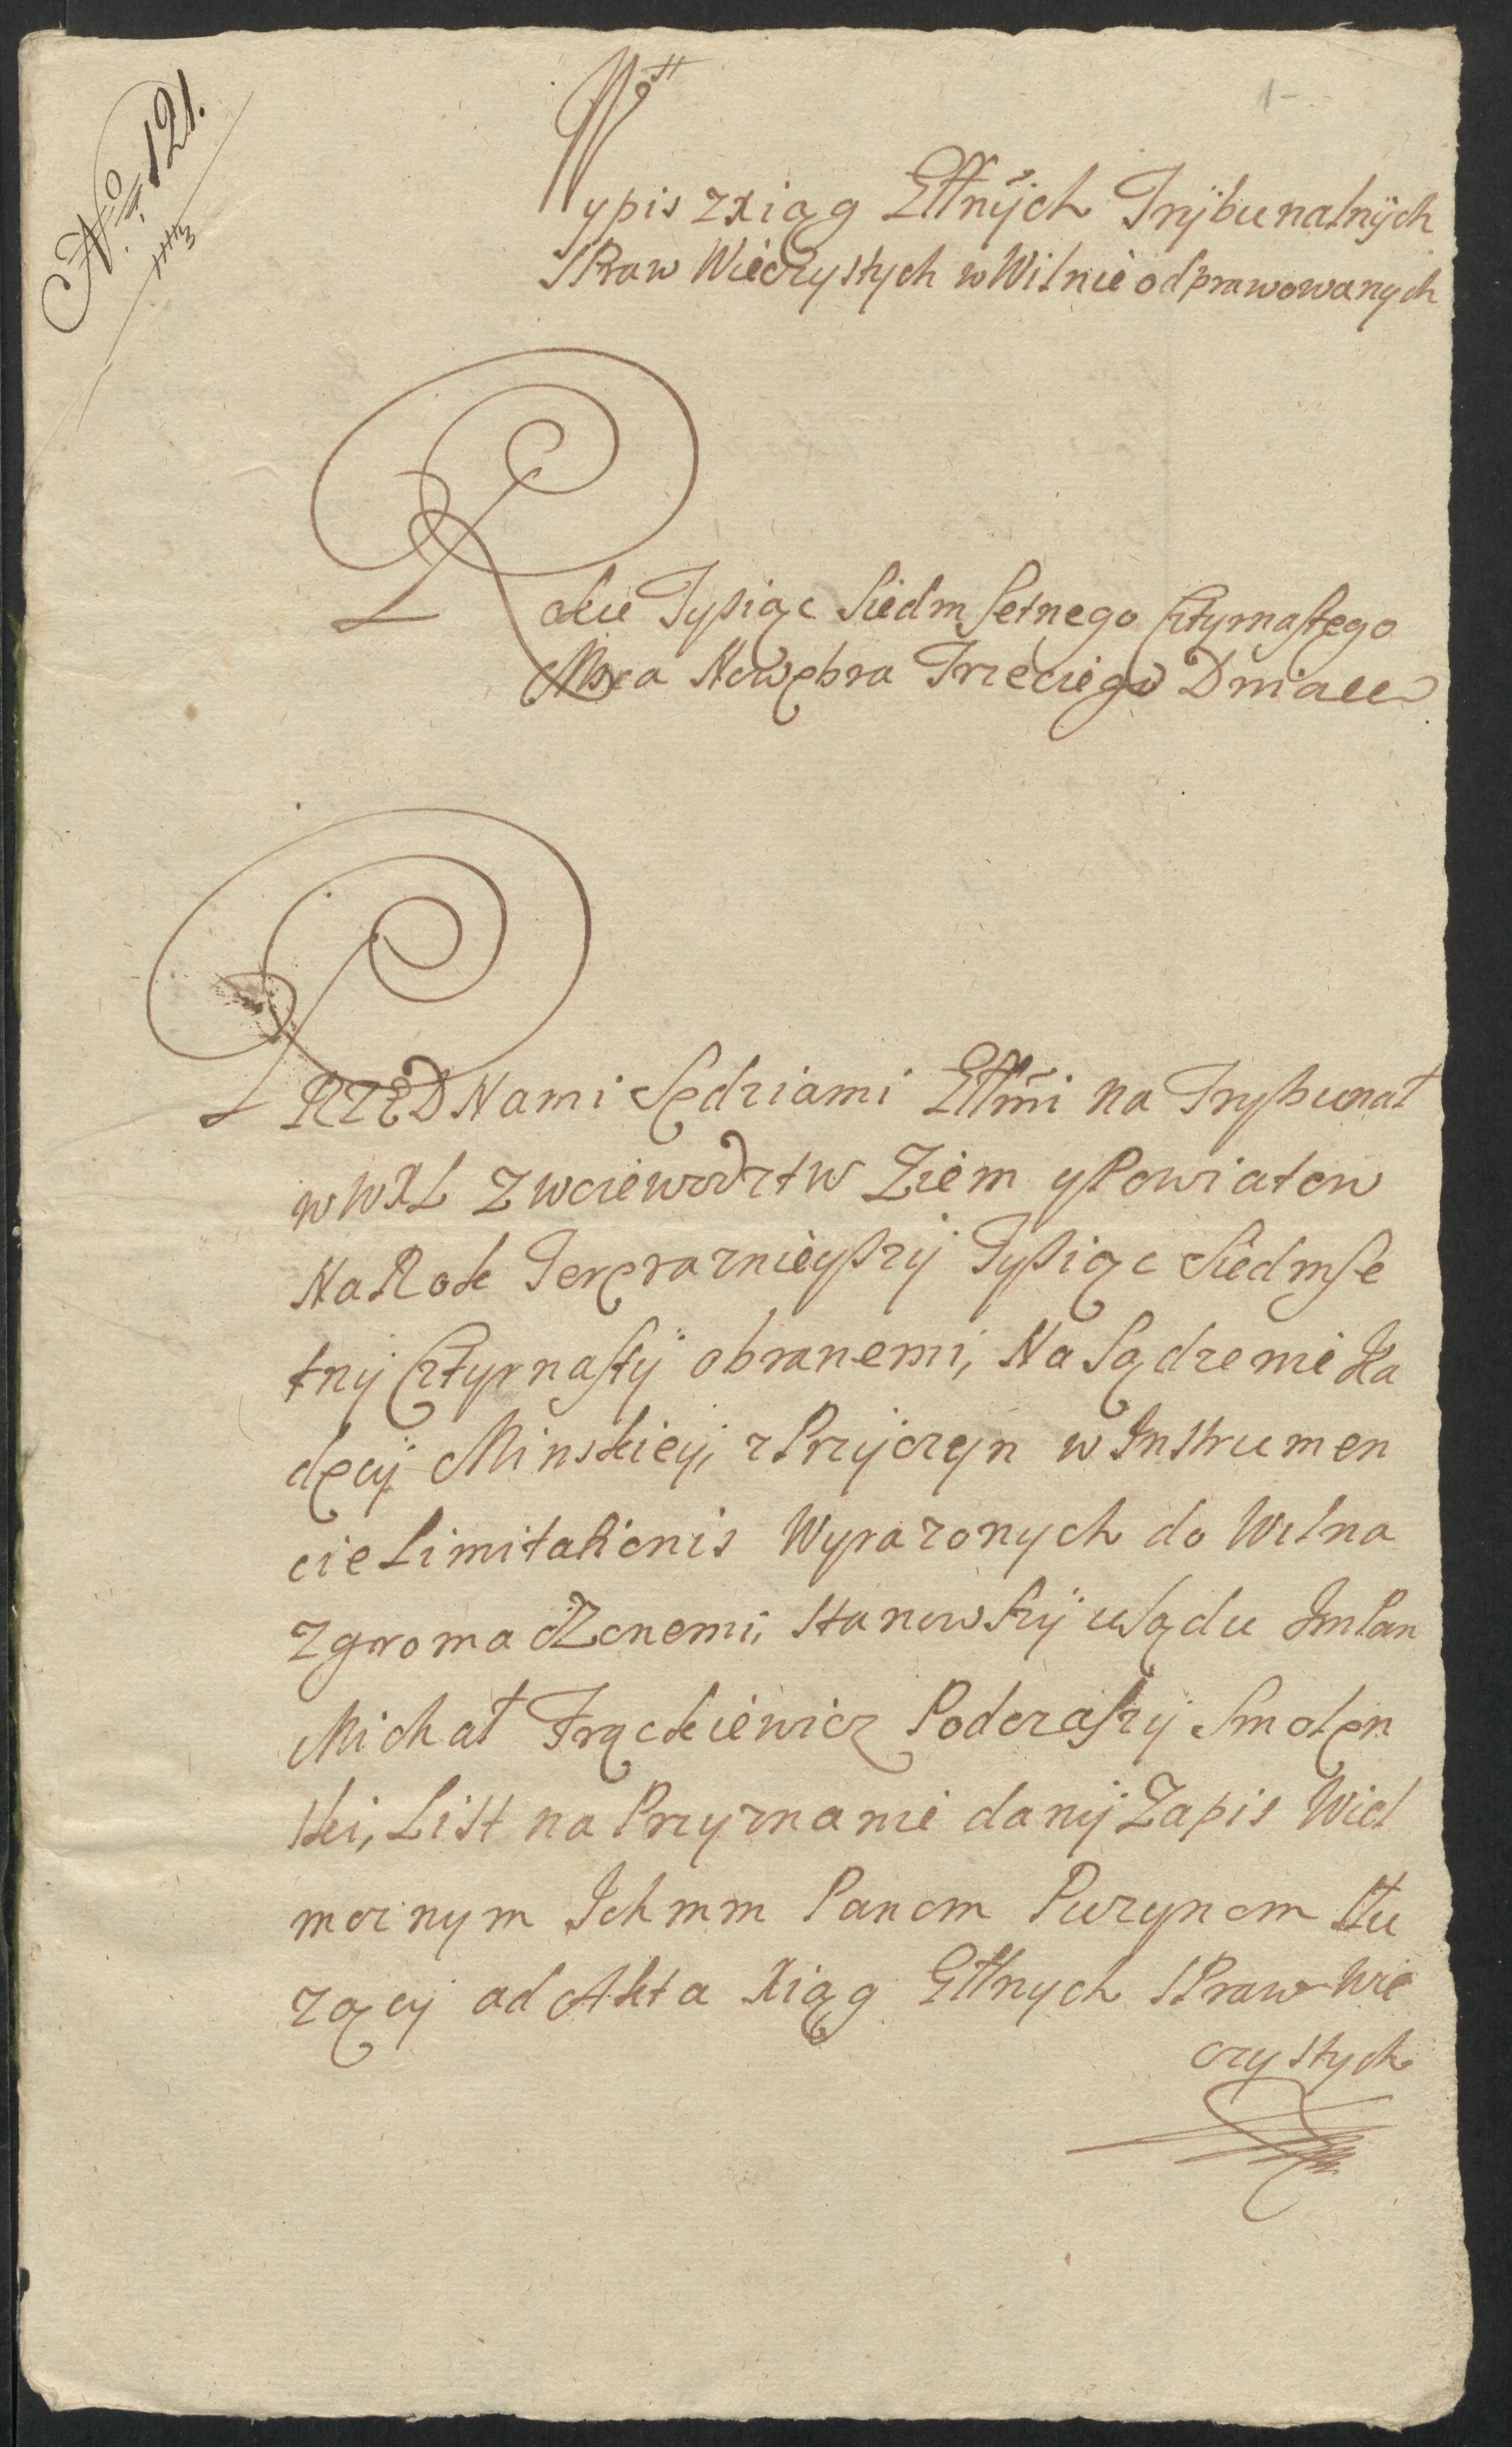 No 121.
1
Wypis z Xiąg Głłnÿch Trÿbunalnÿch
SPraw Wieczystych w Wilnie odprawowanych
Roku Tysiąc Siedm Setnego Cztyrnastego
Msca Nowębra Trzeciego Dnia
PRZED Nami Sędziami Głłmi na Trybunał
w WXL z Woiewodztw Ziem y Powiatow
Na Rok Terẹraznieyszÿ Tysiąc Siedmse
tnÿ Cztyrnastÿ obranemi, Na Sądzenie Ka
dęcÿ Minskiey, z Przÿczyn w Instrumen
cie Limitationis Wyrazonych do Wilna
zgromadzonemi, stanowszÿ u Sądu JmPan
Michał Frąckiewicz Podczaszÿ Smolęn
ski, List na Przyznanie danÿ Zapis Wiel
moznym Ichmm Panom Puzynom słu
ząčy ad Akta Xiąg Głłnych SPraw Wie
czystych